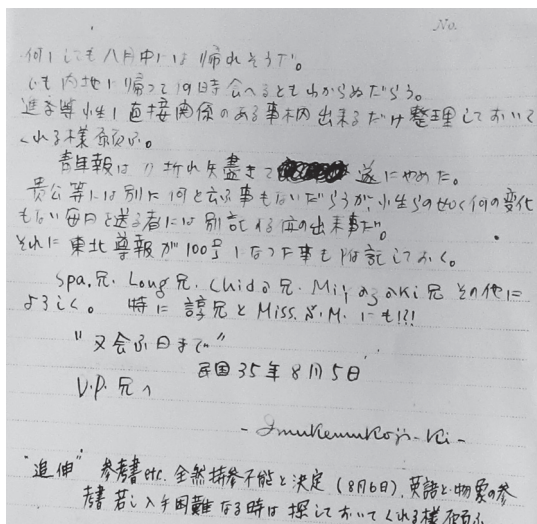 No.
何にしても八月中には帰れそうだ。
しも内地に帰って何時会へるともわからぬだらう。
進学等小生に直接関係のある事柄出来るだけ整理しておいて
くれる様願ふ。
青年報は刀折れ矢盡きて 遂にやめた。
貴公等には別に何と云ふ事もないだらうが、小生らの如く何の変化
もない毎日を送る者には別記する位の出来事だ。
それに東北導報が100号になった事も附記しておく。
Spa.兄. Long兄. Chido兄. 兄 その他に
よろしく。 特に諄兄と Miss. S.M. にも!!!
"又会ふ日まで"
民国35年8月5日
V.P.兄へ
"追伸" 参考書etc. 全然持参不能と決定(8月6日). 英語と物象の参
考書若し入手困難なる時は探しておいてくれる様願ふ